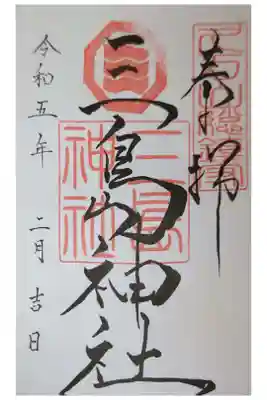 奉拝
三島神社
三島神社
令和五年 二月 吉日